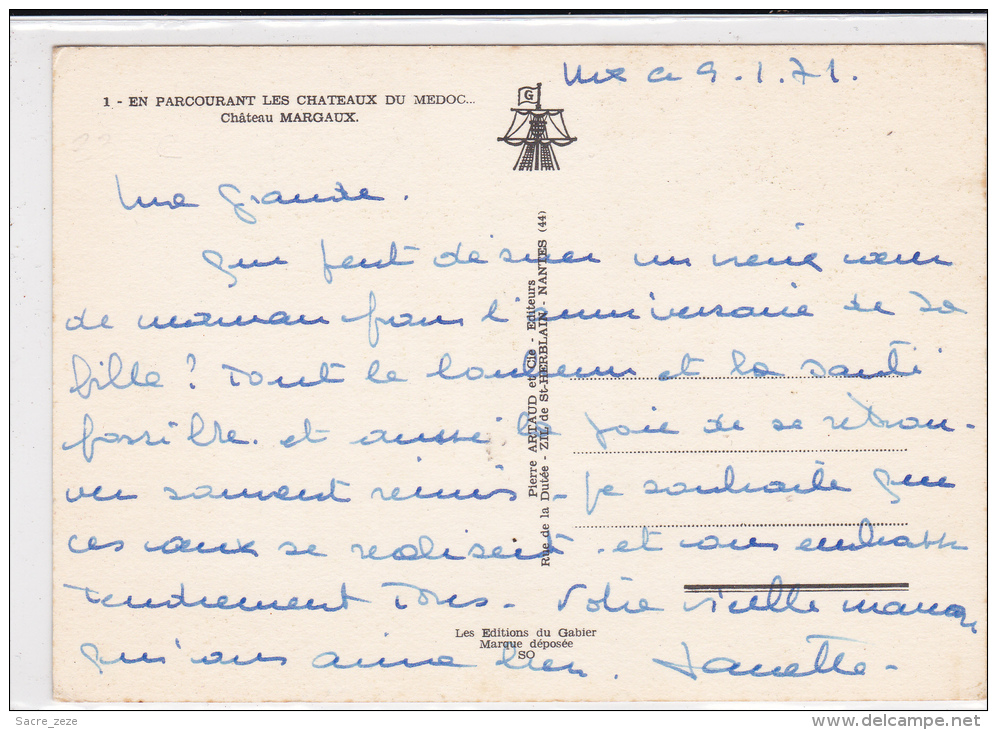 ce 9.1.71.
1 - EN PARCOURANT LES CHATEAUX DU MEDOC...
Château MARGAUX.
G
Ma grande.
que peut désirer un vieux cœur
de maman pour l'anniversaire de sa
fille? Tout le bonheur et la santé
possible. et aussi la joie de se retrou-
ver souvent réunis - je souhaite que
ces vœux se réalisent. et vous embrasse
tendrement Tous - Votre vieille maman
qui vous aime bien.
Pierre ARTAUD et Cie - Editeurs
Rue de la Dutée - ZIL de St-HERBLAIN - NANTES (44)
Les Editions du Gabier
Marque déposée
SO
Sacre_zeze
delcampe.net